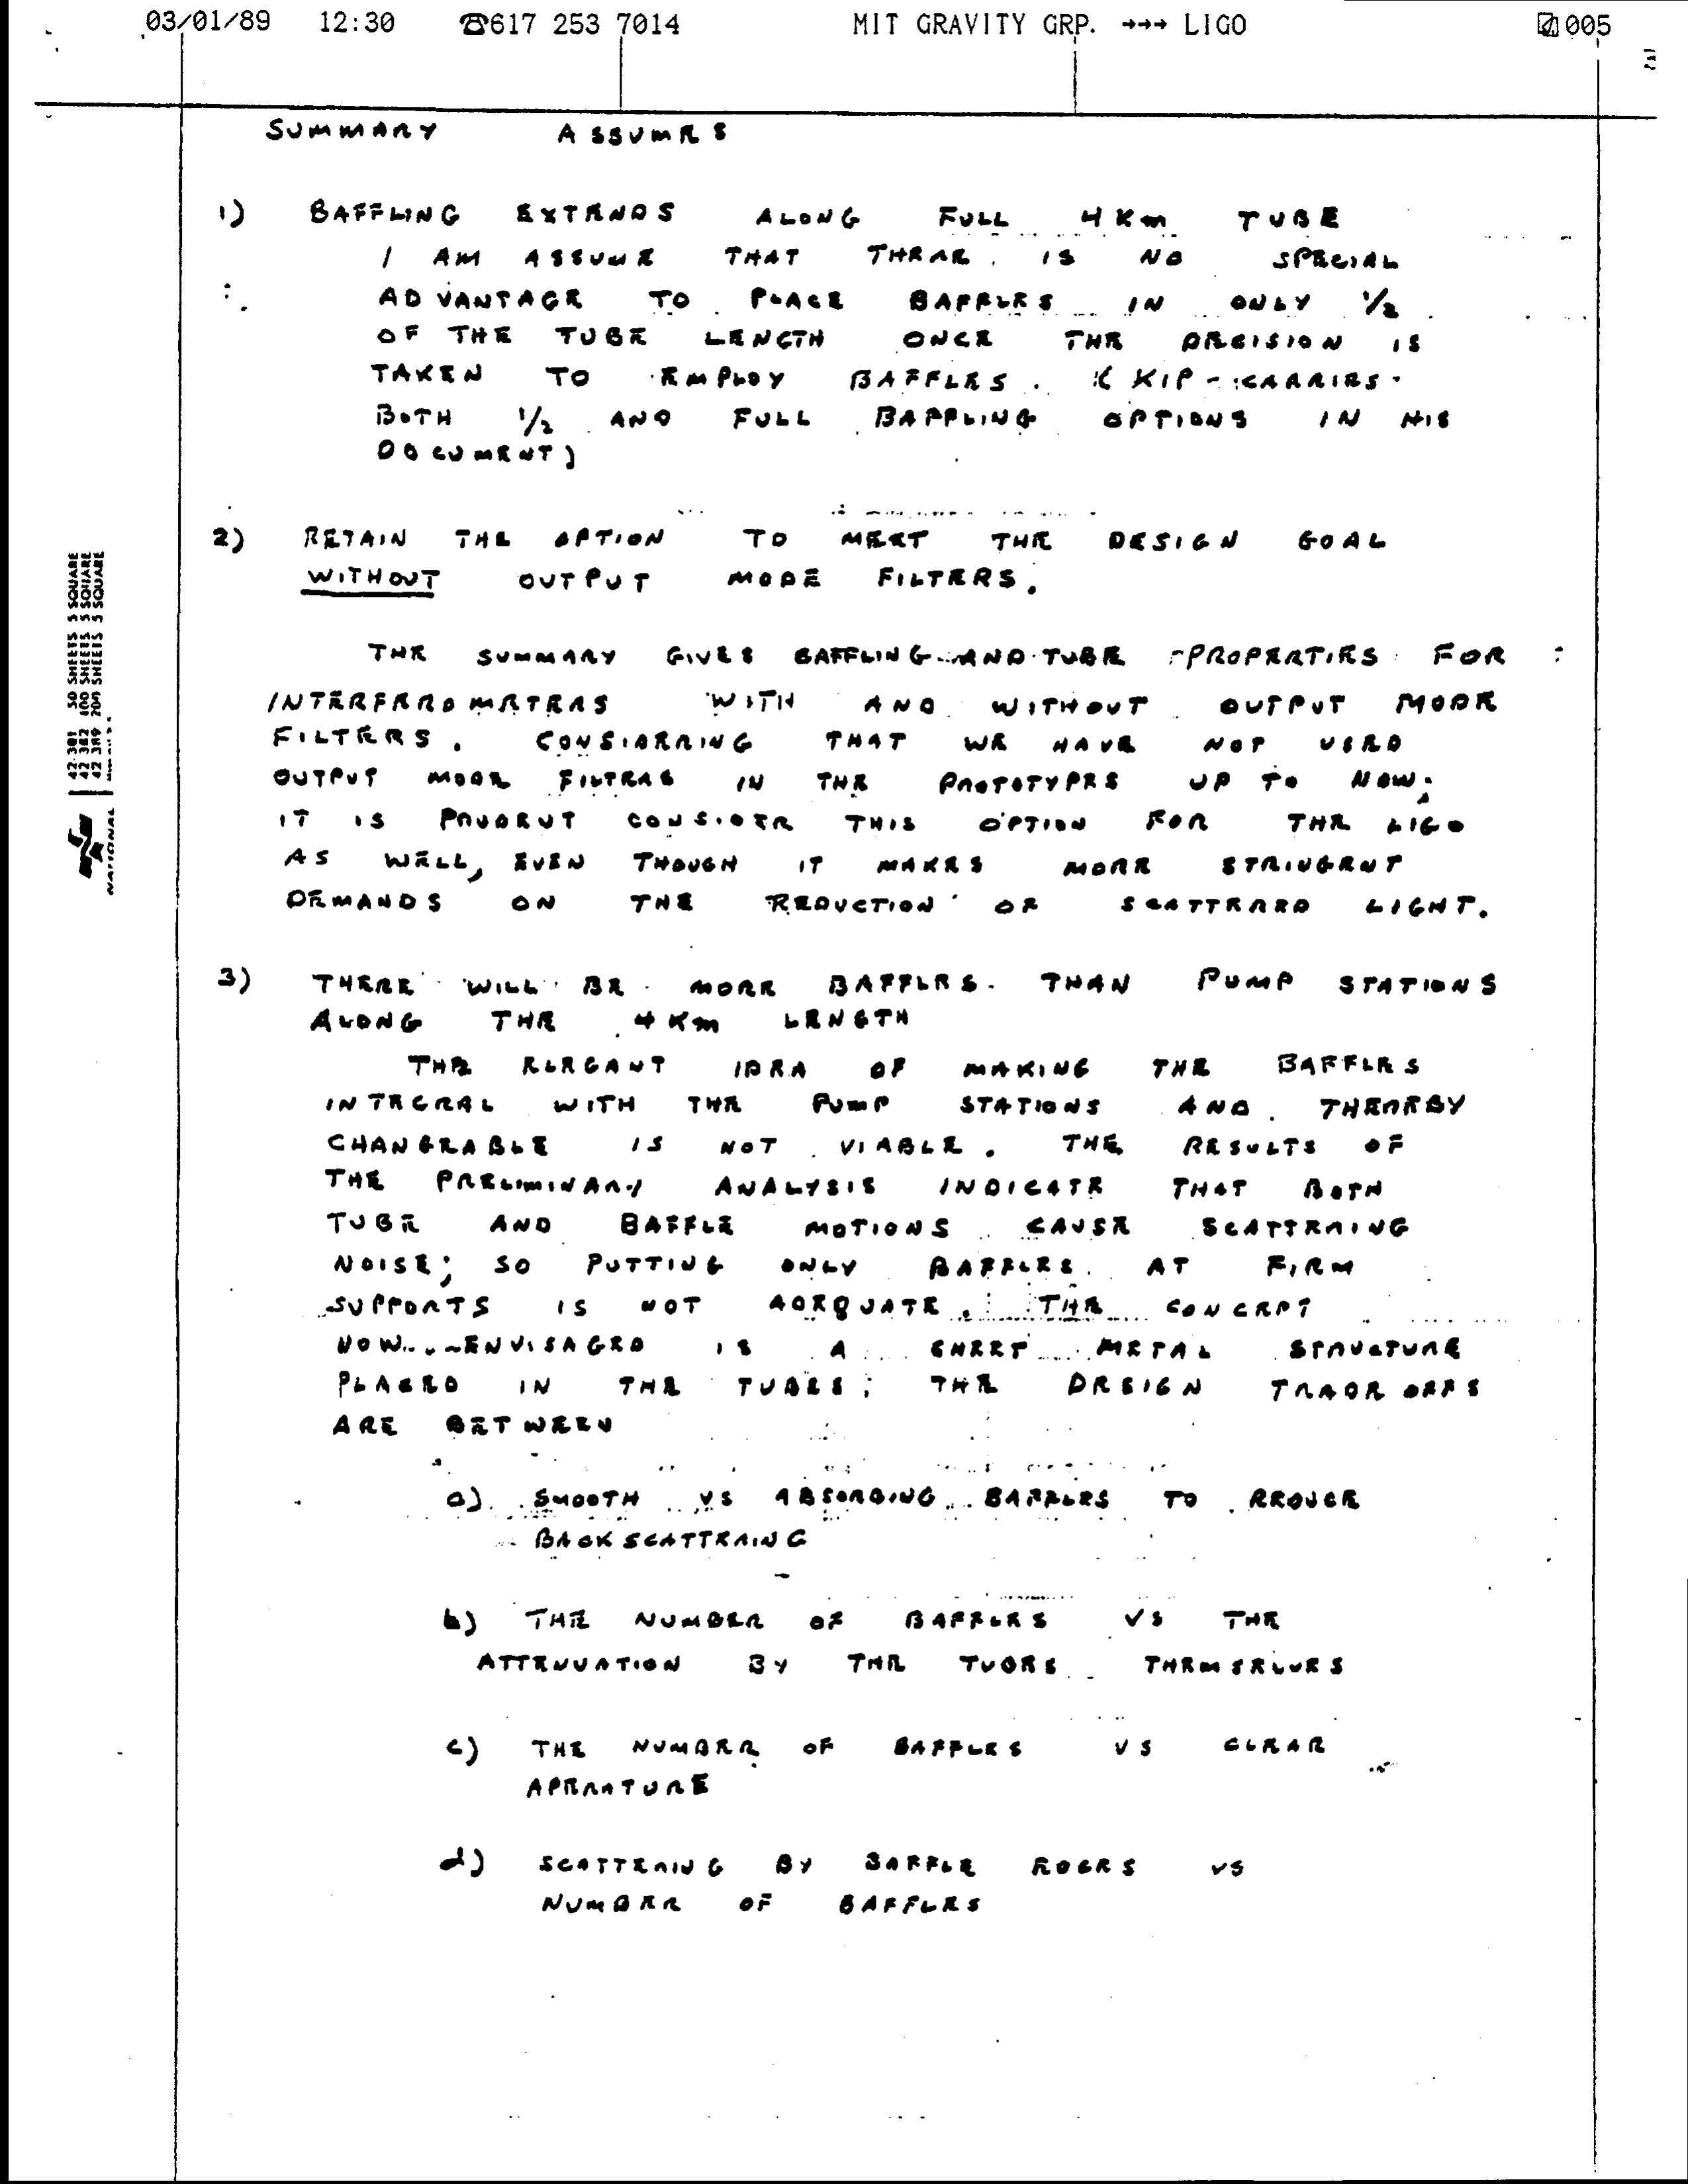 03/01/89 12:30 ☎617 253 7014 MIT GRAVITY GRP. →→→ LIGO 005
3
SUMMARY ASSUMES
1) BAFFLING EXTENDS ALONG FULL 4 Km TUBE
I AM ASSUME THAT THERE IS NO SPECIAL
ADVANTAGE TO PLACE BAFFLES IN ONLY 1/2
OF THE TUBE LENGTH ONCE THE DECISION IS
TAKEN TO EMPLOY BAFFLES. (KIP CARRIES
BOTH 1/2 AND FULL BAFFLING OPTIONS IN HIS
DOCUMENT)
2) RETAIN THE OPTION TO MEET THE DESIGN GOAL
WITHOUT OUTPUT MODE FILTERS.
THE SUMMARY GIVES BAFFLING AND TUBE PROPERTIES FOR
INTERFEROMETERS WITH AND WITHOUT OUTPUT MODE
FILTERS. CONSIDERING THAT WE HAVE NOT USED
OUTPUT MODE FILTERS IN THE PROTOTYPES UP TO NOW;
IT IS PRUDENT CONSIDER THIS OPTION FOR THE LIGO
AS WELL, EVEN THOUGH IT MAKES MORE STRINGENT
DEMANDS ON THE REDUCTION OF SCATTERED LIGHT.
3) THERE WILL BE MORE BAFFLES THAN PUMP STATIONS
ALONG THE 4 Km LENGTH
THE ELEGANT IDEA OF MAKING THE BAFFLES
INTEGRAL WITH THE PUMP STATIONS AND THEREBY
CHANGEABLE IS NOT VIABLE. THE RESULTS OF
THE PRELIMINARY ANALYSIS INDICATE THAT BOTH
TUBE AND BAFFLE MOTIONS CAUSE SCATTERING
NOISE; SO PUTTING ONLY BAFFLES AT FIRM
SUPPORTS IS NOT ADEQUATE. THE CONCEPT
NOW ENVISAGED IS A SHEET METAL STRUCTURE
PLACED IN THE TUBES; THE DESIGN TRADE OFFS
ARE BETWEEN
a) SMOOTH VS ABSORBING BAFFLES TO REDUCE
BACKSCATTERING
b) THE NUMBER OF BAFFLES VS THE
ATTENUATION BY THE TUBES THEMSELVES
c) THE NUMBER OF BAFFLES VS CLEAR
APERATURE
d) SCATTERING BY BAFFLE EDGES VS
NUMBER OF BAFFLES
42 381 50 SHEETS 5 SQUARE
42 382 100 SHEETS 5 SQUARE
42 389 200 SHEETS 5 SQUARE
NATIONAL